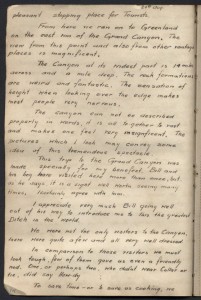 pleasant stopping place for Tourists.
From here we ran on to Greenland
on the east rim of the Grand Canyon. The
view from this point and also from other vantage
places is magnificent.
The Canyon at its widest part is
across and a mile deep. The rock formations
are weird and fantastic. The sensation of
height when looking over the edge makes
most people very nervous.
The Canyon can not be described
properly in words, it is all together so vast
and makes one feel very insignificant. The
pictures which I took may convey some
idea of this tremendous spectacle.
This trip to the Grand Canyon was
made specially for my benefit, Bill and
his boy have visited here more than once but
as he says it is a sight well worth seeing many
times, I certainly agree with him.
I appreciate very much Bill going well
out of his way to introduce me to this the greatest
Ditch in the world.
We were not the only visitors to the Canyon,
there were quite a few and all very well dressed
In comparison to these visitors, we must
look tough, few of them gave us even a friendly
nod. One, or perhaps two, who noticed our Collar or
tie, did say Howdy.
To save time or to save us cooking, we